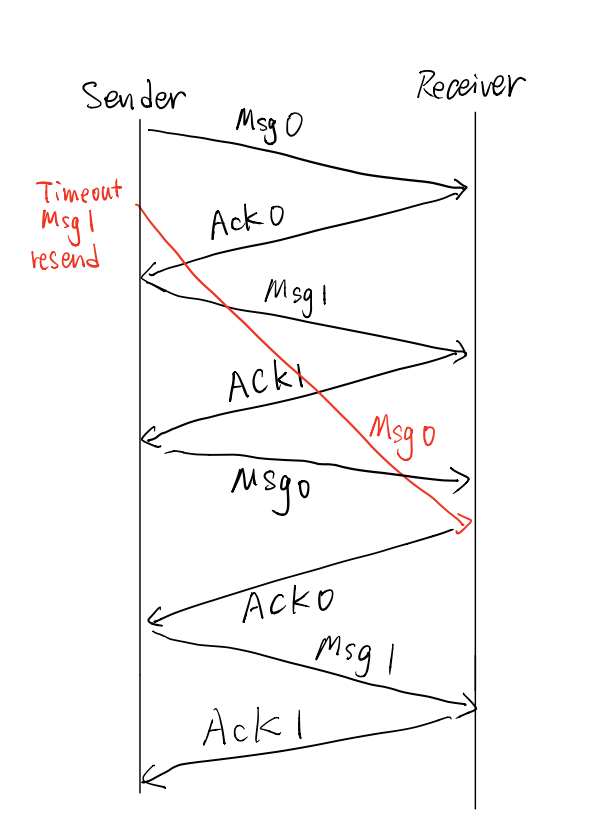 Sender
Receiver
Msg 0
Timeout
Msg 1
resend
Ack 0
Msg 1
ACK 1
Msg 0
Msg 0
ACK 0
Msg 1
Ack 1